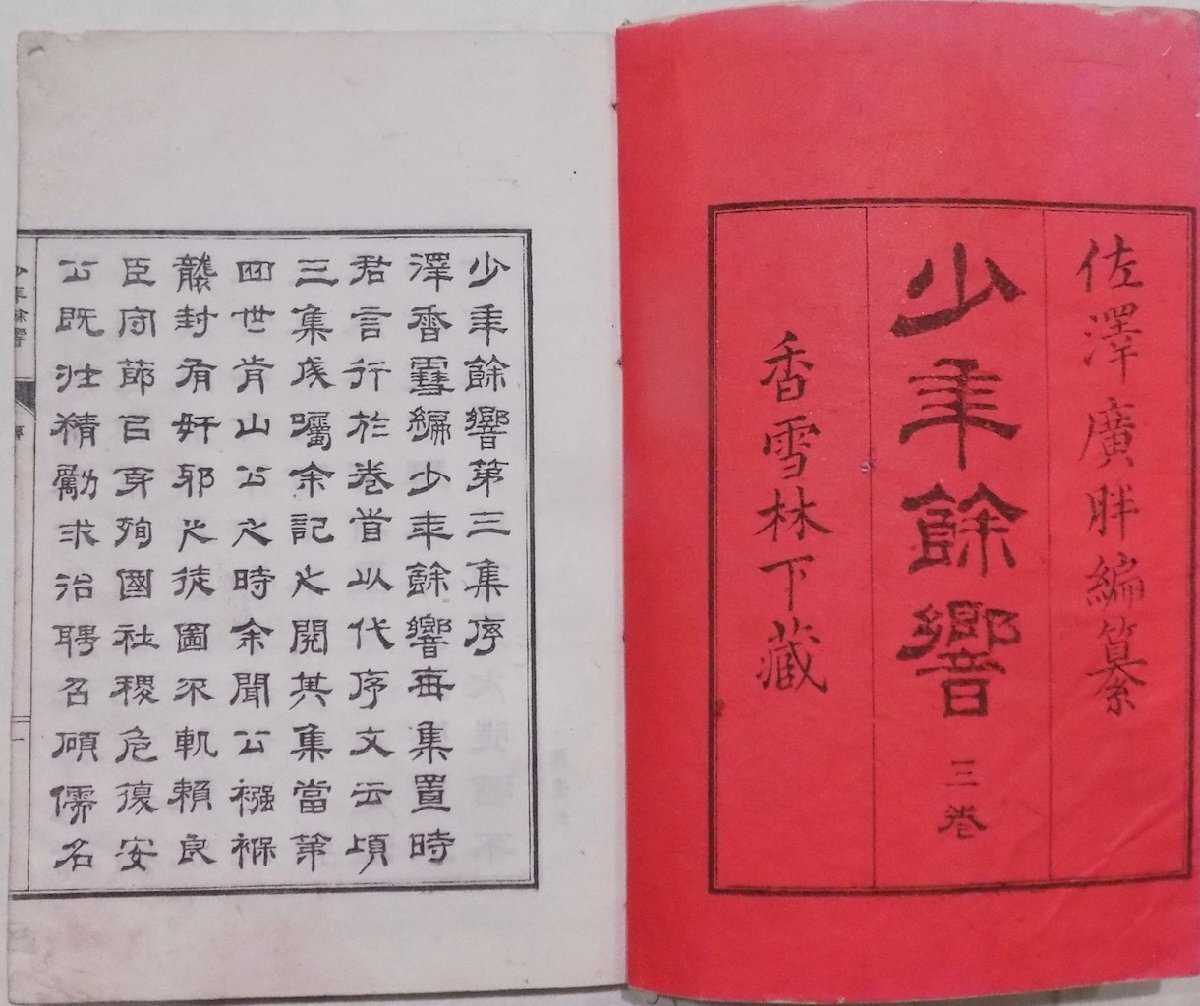 佐澤廣胖編纂
少年餘響 三卷
香雪林下藏
少年餘響第三集序
澤香雪編少年餘響每集置時
君言行於卷首以代序文云頃
三集成囑余記之閱其集當第
四世肯山公之時余聞公襁褓
襲封有奸邪之徒圖不軌賴良
臣守節以身殉國社稷危復安
公既壯精勵求治聘召碩儒名
少年餘響